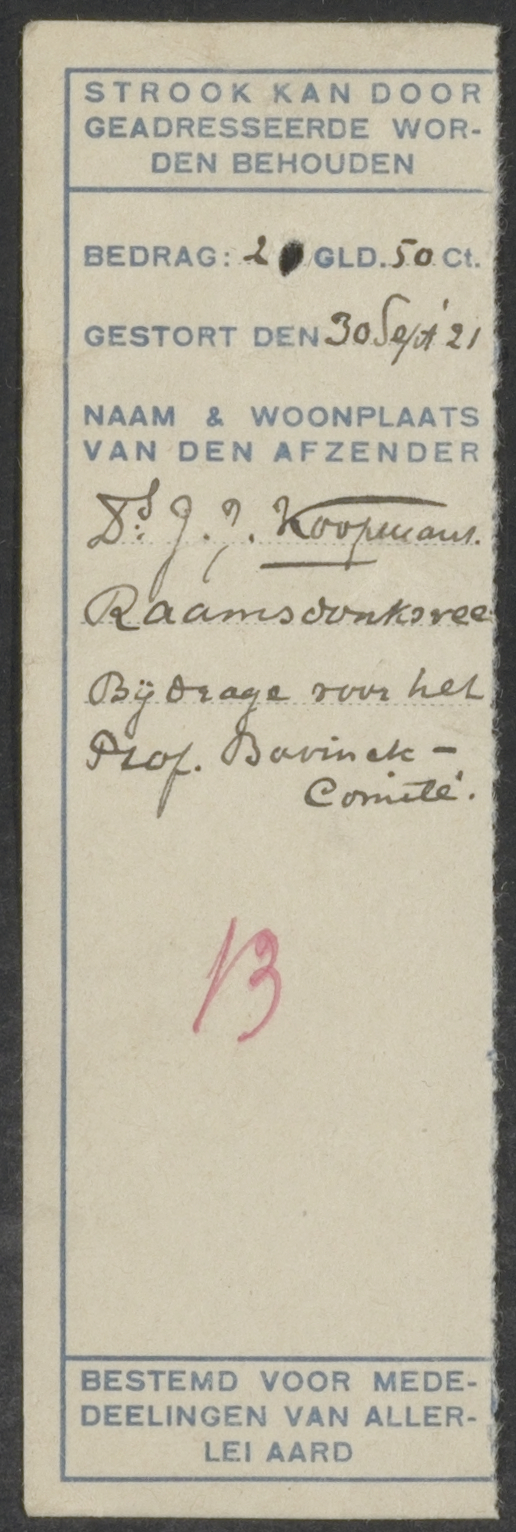 STROOK KAN DOOR
GEADRESSEERDE WOR-
DEN BEHOUDEN
BEDRAG: 2 GLD. 50 Ct.
GESTORT DEN 30 Sept '21
NAAM & WOONPLAATS
VAN DEN AFZENDER
Ds. J. J. Koopmans.
Raamsdonksvee
Bijdrage voor het
Prof. Bavinck-
Comité.
13
BESTEMD VOOR MEDE-
DEELINGEN VAN ALLER-
LEI AARD